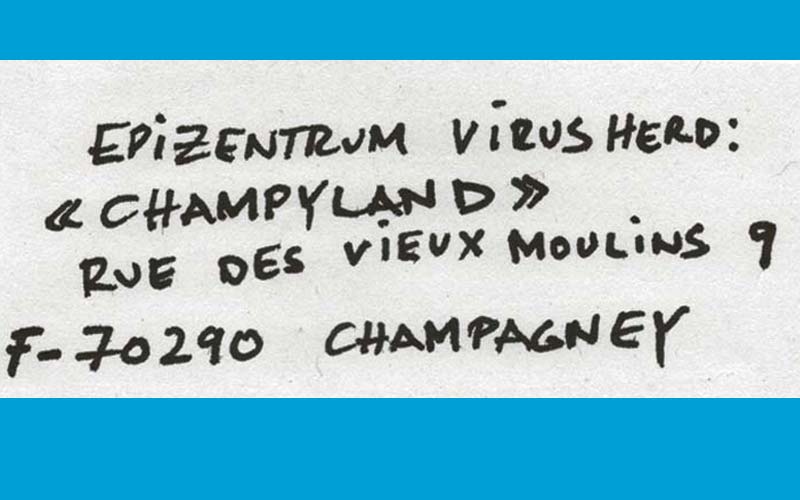 EPiZENTRUM ViRUS HERD:
« CHAMPYLAND »
RUE DES ViEUX MOULiNS 9
F-70290 CHAMPAGNEY